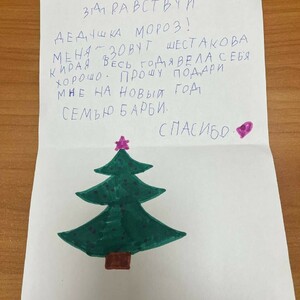 ЗДРАВСТВУЙ
ДЕДУШКА МОРОЗ!
МЕНЯ ЗОВУТ ШЕСТАКОВА
КИРА Я ВЕСЬ ГОД Я ВЕЛА СЕБЯ
ХОРОШО. ПРОШУ ПОДАРИ
МНЕ НА НОВЫЙ ГОД
СЕМЬЮ БАРБИ.
СПАСИБО